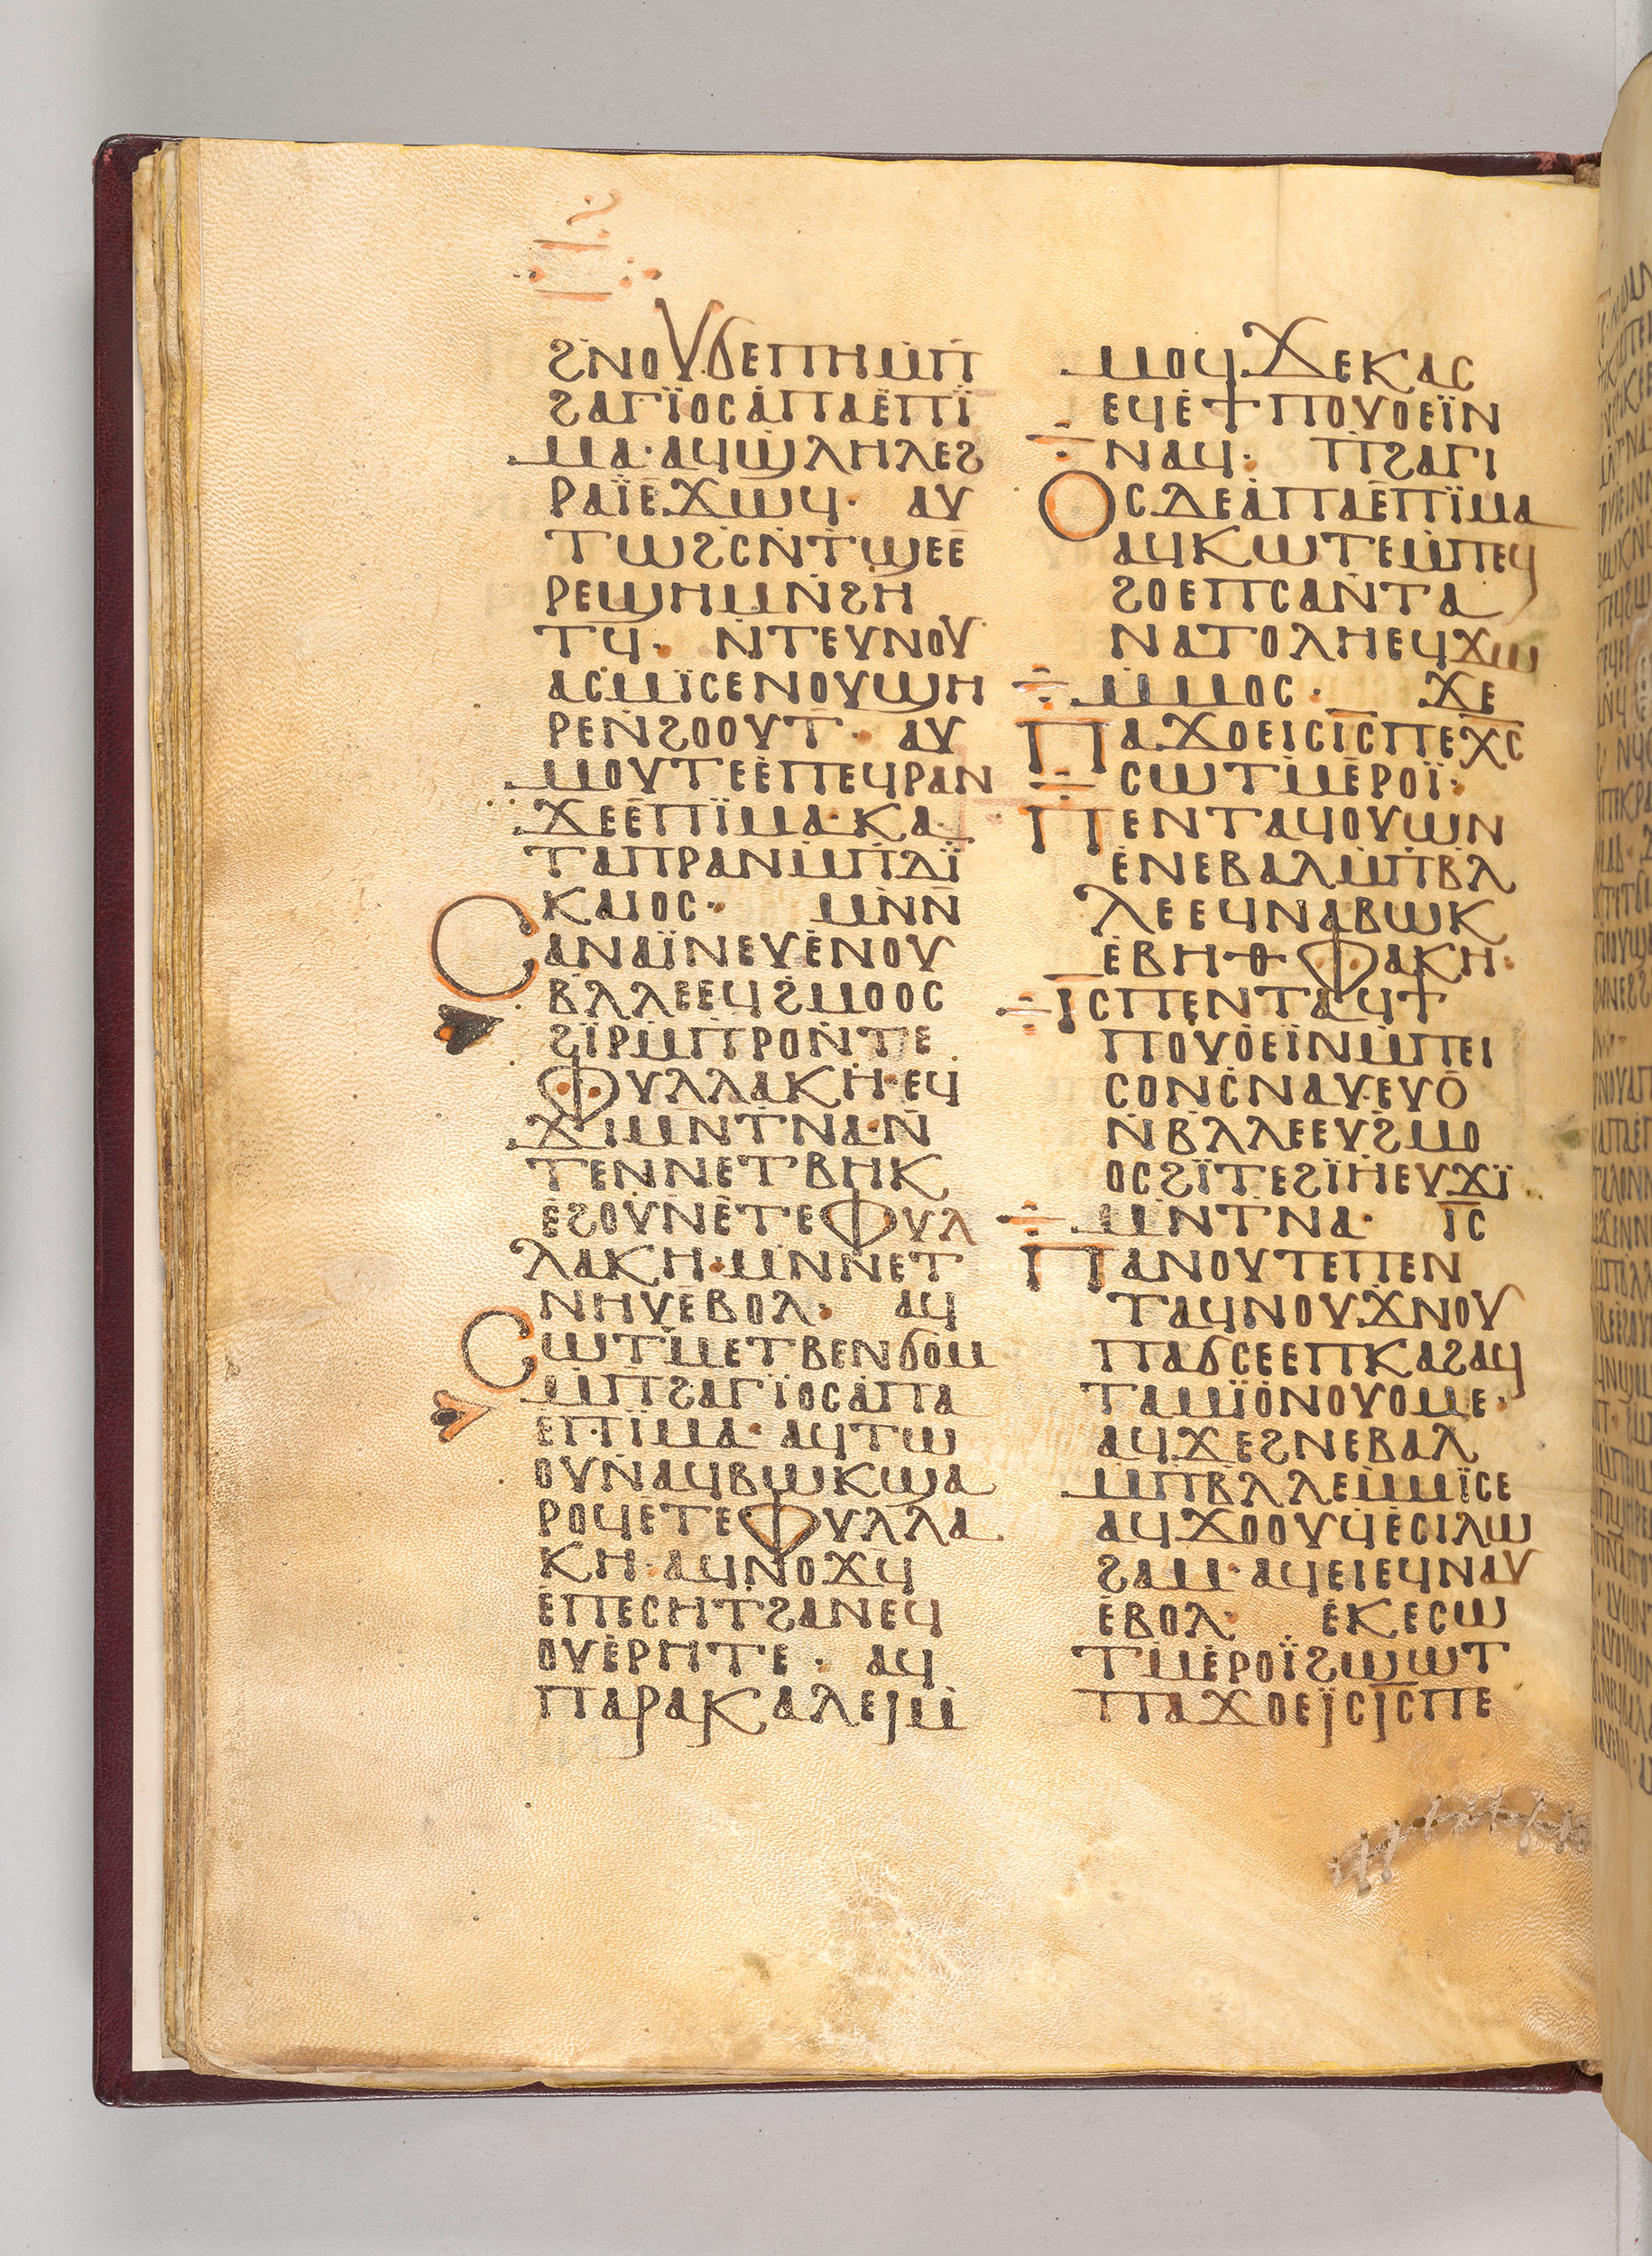 ϩⲛⲟⲩϭⲉⲡⲏⲙ̇ⲡ̇
ϩⲁⲅⲓ̈ⲟⲥⲁ̇ⲡⲁⲉ̇ⲡⲓ̇
ⲙⲁ·ⲁϥϣⲗⲏⲗⲉϩ
ⲣⲁⲓ̈ⲉϫⲱϥ· ⲁⲩ
ⲧⲱϩⲥⲛ̇ⲧ̇ϣⲉⲉ
ⲣⲉϣⲏⲙⲛ̇ϩⲏ
ⲧϥ· ⲛ̇ⲧⲉⲩⲛⲟⲩ
ⲁⲥⲙⲓ̈ⲥⲉⲛⲟⲩϣⲏ
ⲣⲉⲛ̇ϩⲟⲟⲩⲧ· ⲁⲩ
ⲙⲟⲩⲧⲉⲉ̇ⲡⲉϥⲣⲁⲛ
ϫⲉⲉ̇ⲡⲓ̈ⲙⲁ·ⲕⲁ
ⲧⲁⲡⲣⲁⲛⲙ̇ⲡ̇ⲇⲓ̈
ⲕⲁⲓⲟⲥ· ⲙⲛ̇ⲛ̇
ⲥⲁⲛⲁⲓ̈ⲛⲉⲩⲉ̇ⲛⲟⲩ
ⲃⲗⲗⲉⲉϥϩⲙⲟⲟⲥ
ϩⲓ̈ⲣⲙ̇ⲡ̇ⲣⲟⲛ̇ⲧⲉ
ⲫⲩⲗⲗⲁⲕⲏ·ⲉϥ
ϫⲓⲙⲛ̇ⲧ̇ⲛⲁ·ⲛ̇
ⲧⲉⲛⲛⲉⲧⲃⲏⲕ
ⲉ̇ϩⲟⲩⲛⲉ̇ⲧⲉⲫⲩⲗ
ⲗⲁⲕⲏ·ⲙⲛⲛⲉⲧ
ⲛⲏⲩⲉ̇ⲃⲟⲗ· ⲁϥ
ⲥⲱⲧⲙ̇ⲉⲧⲃⲉⲛϭⲟⲙ
ⲙ̇ⲡ̇ϩⲁⲅⲓ̈ⲟⲥⲁ̇ⲡⲁ
ⲉⲡⲓ̈ⲙⲁ·ⲁϥⲧⲱ
ⲟⲩⲛ̇ⲁϥⲃⲱⲕϣⲁ
ⲣⲟϥⲉ̇ⲧⲉⲫⲩⲗⲗⲁ
ⲕⲏ·ⲁϥⲛⲟϫϥ
ⲉ̇ⲡⲉⲥⲏⲧϩⲁⲛⲉϥ
ⲟⲩⲉ̇ⲣⲏⲧⲉ· ⲁϥ
ⲡⲁⲣⲁⲕⲁⲗⲉⲓⲙ̇
ⲙⲟϥϫⲉⲕⲁⲥ
ⲉϥⲉ̇ϯⲡⲟⲩⲟⲉⲓ̈ⲛ
ⲛⲁϥ· ⲡ̇ϩⲁⲅⲓ
ⲟⲥⲇⲉⲁ̇ⲡⲁⲉ̇ⲡⲓ̈ⲙⲁ
ⲁϥⲕⲱⲧⲉⲙ̇ⲡⲉϥ
ϩⲟⲉⲡⲥⲁⲛ̇ⲧⲁ
ⲛⲁⲧⲟⲗⲏⲉϥϫⲱ
ⲙ̇ⲙⲟⲥ· ϫⲉ
ⲡⲁϫⲟⲉⲓⲥⲓ̅ⲥ̅ⲡⲉⲭ̅ⲥ̅
ⲥⲱⲧⲙ̇ⲉ̇ⲣⲟⲓ̈·
ⲡⲉⲛⲧⲁϥⲟⲩⲱⲛ
ⲉ̇ⲛⲉⲃⲁⲗⲙ̇ⲡ̇ⲃⲗ
ⲗⲉⲉϥⲛⲁⲃⲱⲕ
ⲉ̇ⲃⲏⲑⲫⲁⲕⲏ·
ⲓ̅ⲥ̅ⲡⲉⲛⲧⲁϥϯ
ⲡⲟⲩⲟ̇ⲉⲓ̈ⲛⲙ̇ⲡⲉⲓ
ⲥⲟⲛⲥ̇ⲛⲁⲩ·ⲉⲩⲟ̅
ⲛ̇ⲃⲗⲗⲉⲉⲩϩⲙⲟ
ⲟⲥϩⲓ̈ⲧⲉϩⲓ̈ⲏⲉⲩϫⲓ̈
ⲙⲛ̇ⲧⲛⲁ· ⲓ̅ⲥ̅
ⲡⲁⲛⲟⲩⲧⲉⲡⲉⲛ
ⲧⲁϥⲛⲟⲩϫⲛⲟⲩ
ⲡⲁϭⲥⲉⲉⲡⲕⲁϩⲁϥ
ⲧⲁⲙⲓ̈ⲟ̇ⲛⲟⲩⲟⲙⲉ·
ⲁϥϫⲉϩⲛⲉⲃⲁⲗ
ⲙ̇ⲡⲃⲗⲗⲉⲙ̇ⲙⲓ̈ⲥⲉ
ⲁϥϫⲟⲟⲩϥⲉ̇ⲥⲓⲗⲱ
ϩⲁⲙ·ⲁϥⲉⲓⲉϥⲛⲁⲩ
ⲉ̇ⲃⲟⲗ· ⲉ̇ⲕⲉⲥⲱ
ⲧⲙ̇ⲉ̇ⲣⲟⲓ̈ϩⲱⲱⲧ
ⲡⲁϫⲟⲉⲓ̈ⲥⲓ̅ⲥ̅ⲡⲉ